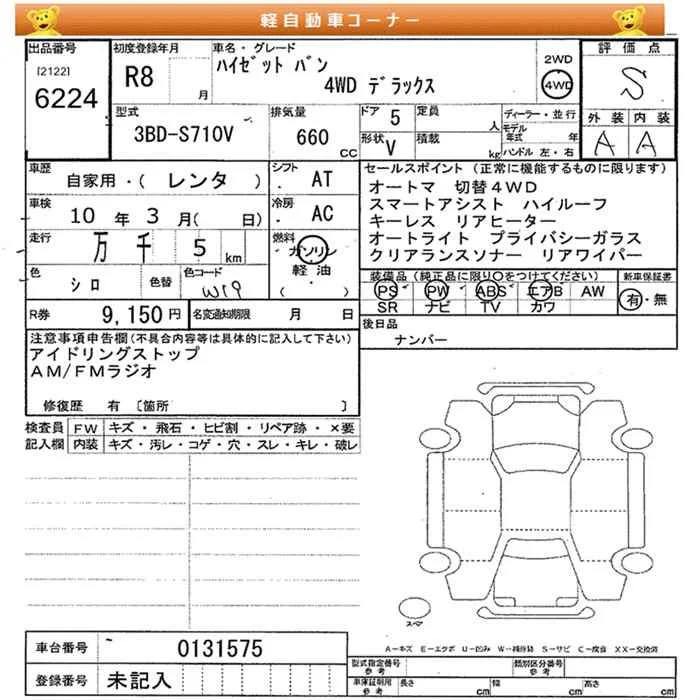 軽自動車コーナー
出品番号 初度登録年月 車名・グレード 評価点
[2122]
6224
R8 月
ハイゼット バン
4WD デラックス
2WD
4WD
S
型式 排気量 ドア 定員 ディーラー・並行 外装 内装
3BD-S710V 660 CC 5 人 モデル年式 年 A A
形状 V 積載 kg ハンドル 左・右
車歴 シフト セールスポイント (正常に機能するものに限ります)
自家用・( レンタ ) AT
オートマ 切替4WD
車検 冷房 スマートアシスト ハイルーフ
10 年 3 月( 日) AC
キーレス リアヒーター
走行 万 千 5 km 燃料 ガソリン
オートライト プライバシーガラス
軽油
クリアランスソナー リアワイパー
色 シロ 色替 色コード W19 ( )
装備品 (純正品に限り○をつけてください) 新車保証書
PS PW ABS エアB AW 有・無
SR ナビ TV カワ
R券 9,150円 名変通知期限 月 日
後日品
ナンバー
注意事項申告欄(不具合内容等は具体的に記入して下さい)
アイドリングストップ
AM/FMラジオ
修復歴 有 〔箇所 〕
検査員 FW キズ・飛石・ヒビ割・リペア跡・×要
記入欄 内装 キズ・汚レ・コゲ・穴・スレ・キレ・破レ
スペア
A=キズ E=エクボ U=凹み W=補修跡 S=サビ C=腐食 XX=交換済
車台番号 0131575
登録番号 未記入
型式指定番号 参考 類別区分番号 参考
車庫証明用 参考 長さ cm 幅 cm 高さ cm